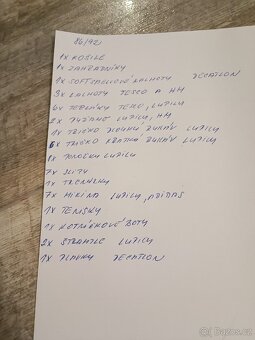 86/92
1x KOŠILE
1x ZAHRADNÍKY
1x SOFTSHELLOVÉ KALHOTY DECATLON
3x KALHOTY TESCO A HM
6x TEPLÁKY TESCO, LUPILU
2x PYŽAMO LUPILU, HM
1x TRIČKO DLOUHÝ RUKÁV LUPILU
6x TRIČKO KRÁTKÝ RUKÁV LUPILU
1x LUPILU
7x SLIPY
1x TRENÝRKY
7x MIKINA LUPILU, ADIDAS
1x TENISKY
1x KOTNÍKOVÉ BOTY
2x LUPILU
1x PLAVKY DECATLON
Bazos.cz